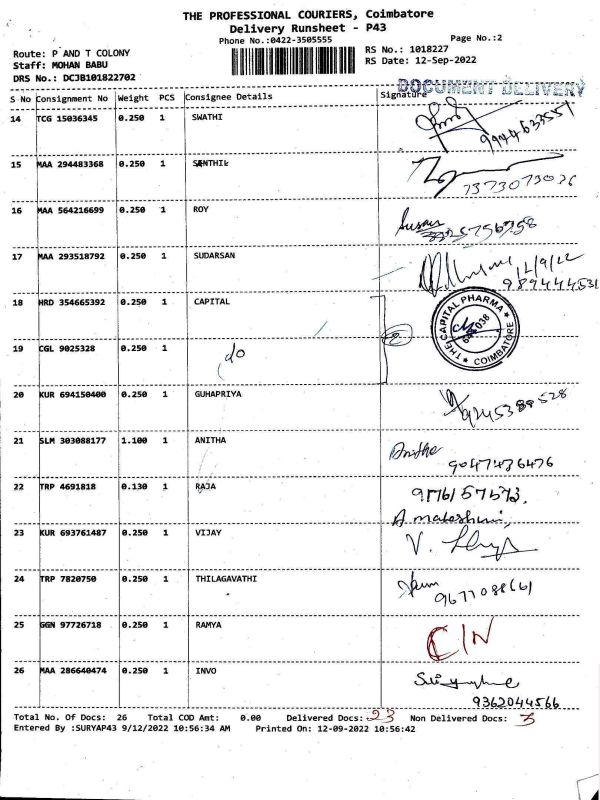 THE PROFESSIONAL COURIERS, Coimbatore
Delivery Runsheet - P43
Phone No.:0422-3505555
Page No.:2
Route: P AND T COLONY
RS No.: 1018227
Staff: MOHAN BABU
RS Date: 12-Sep-2022
DRS No.: DCJB101822702
DOCUMENT DELIVERY
S No Consignment No Weight PCS Consignee Details Signature
14 TCG 15036345 0.250 1 SWATHI
15 MAA 294483368 0.250 1 SENTHIL
7373073036
16 MAA 564216699 0.250 1 ROY
Susan
17 MAA 293518792 0.250 1 SUDARSAN
12/9/22
18 HRD 354665392 0.250 1 CAPITAL
THE CAPITAL PHARMA
COIMBATORE
19 CGL 9025328 0.250 1 do
20 KUR 694150400 0.250 1 GUHAPRIYA
9245389528
21 SLM 303088177 1.100 1 ANITHA
Anitha
9047436476
22 TRP 4691818 0.130 1 RAJA
23 KUR 693761487 0.250 1 VIJAY
24 TRP 7820750 0.250 1 THILAGAVATHI
25 GGN 97726718 0.250 1 RAMYA
C/N
26 MAA 286640474 0.250 1 INVO
9362044566
Total No. Of Docs: 26 Total COD Amt: 0.00 Delivered Docs: 23 Non Delivered Docs: 3
Entered By :SURYAP43 9/12/2022 10:56:34 AM Printed On: 12-09-2022 10:56:42